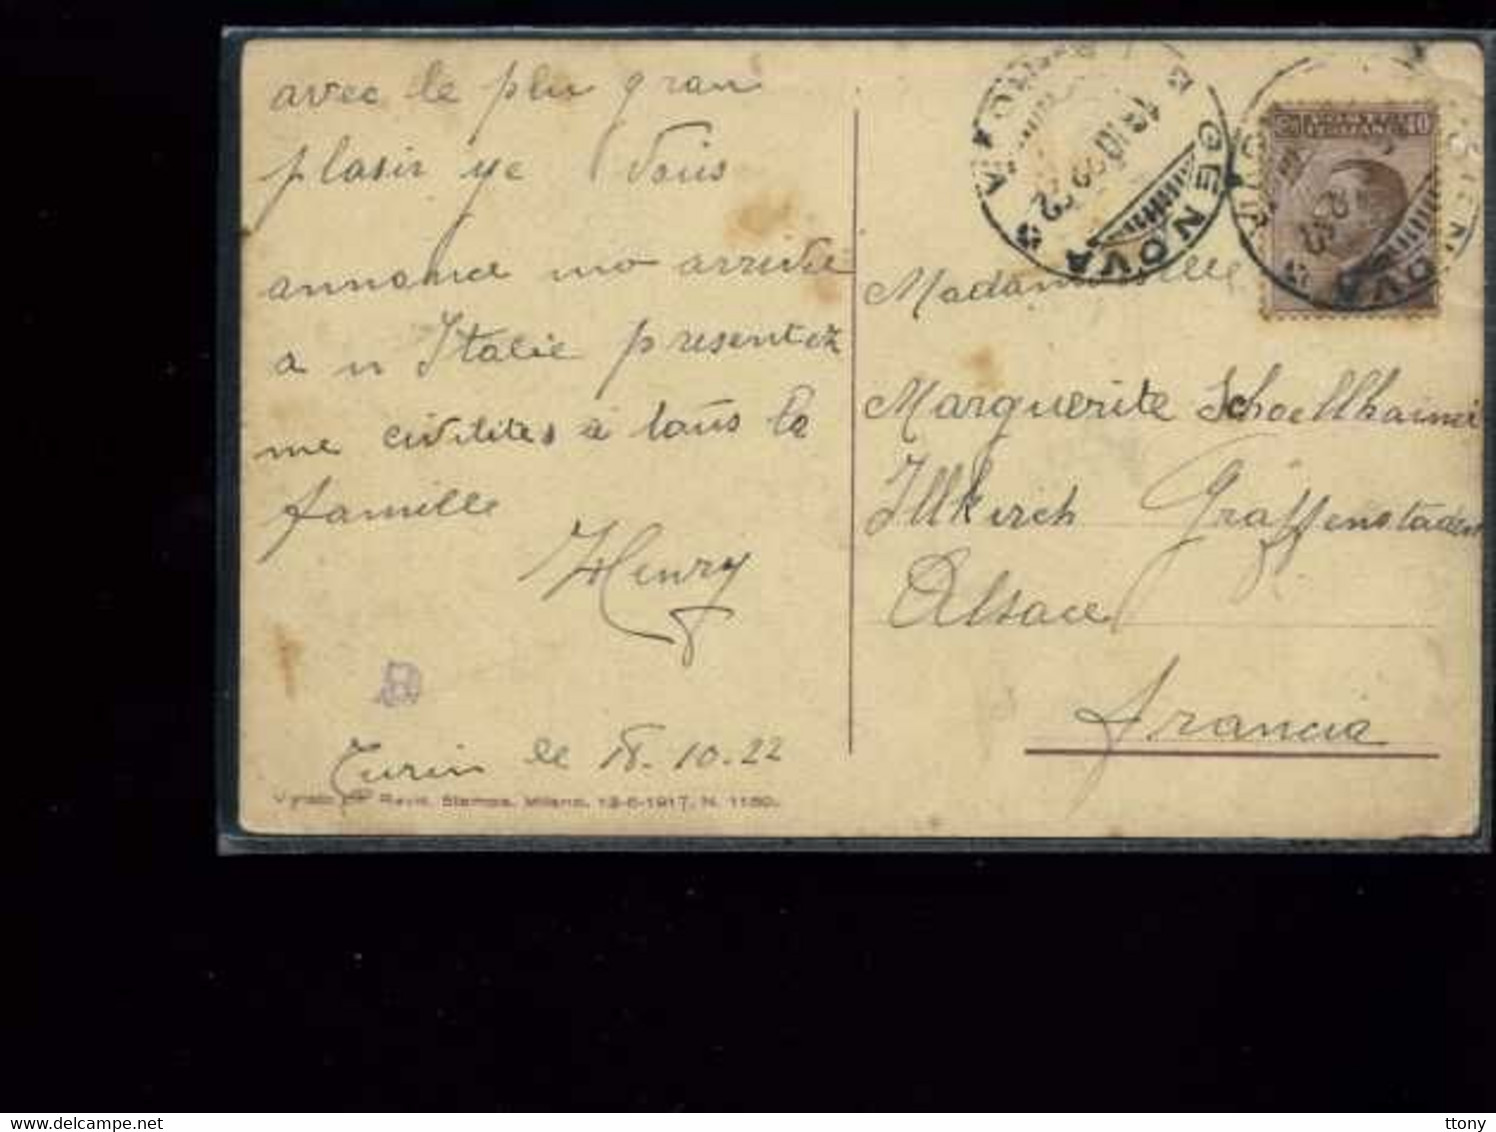 avec le plu gran
plasir ye Vous
annonce mo arrivée
a n Italie presentez
me civilites a tous la
famille
Henry
Turin le 18.10.22
Revis. Stampa. Milano, 13-6-1917. N. 1150.
GENOVA
18 10 22
GENOVA
40
Mademoiselle
Marguerite Schoellhamer
Illkirch Graffenstaden
Alsace
Francia
ttony